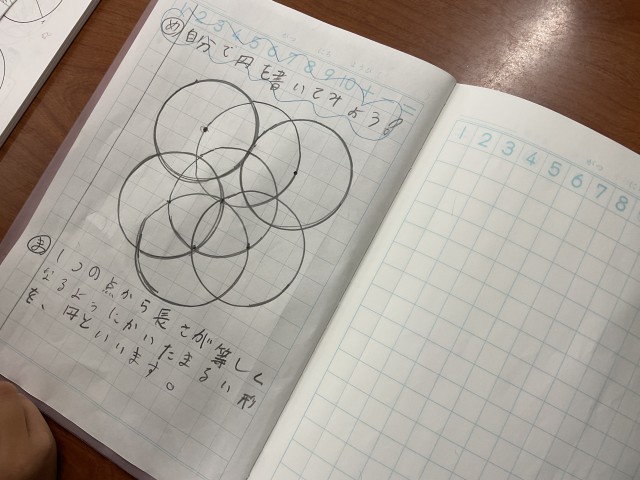 1 2 3 4 5 6 7 8 9 10 + 二
め 自分で円を書いてみよう!
ま 1つの点から長さが等しく
なるようにかいたまるい形
を、円といいます。
1 2 3 4 5 6 7 8